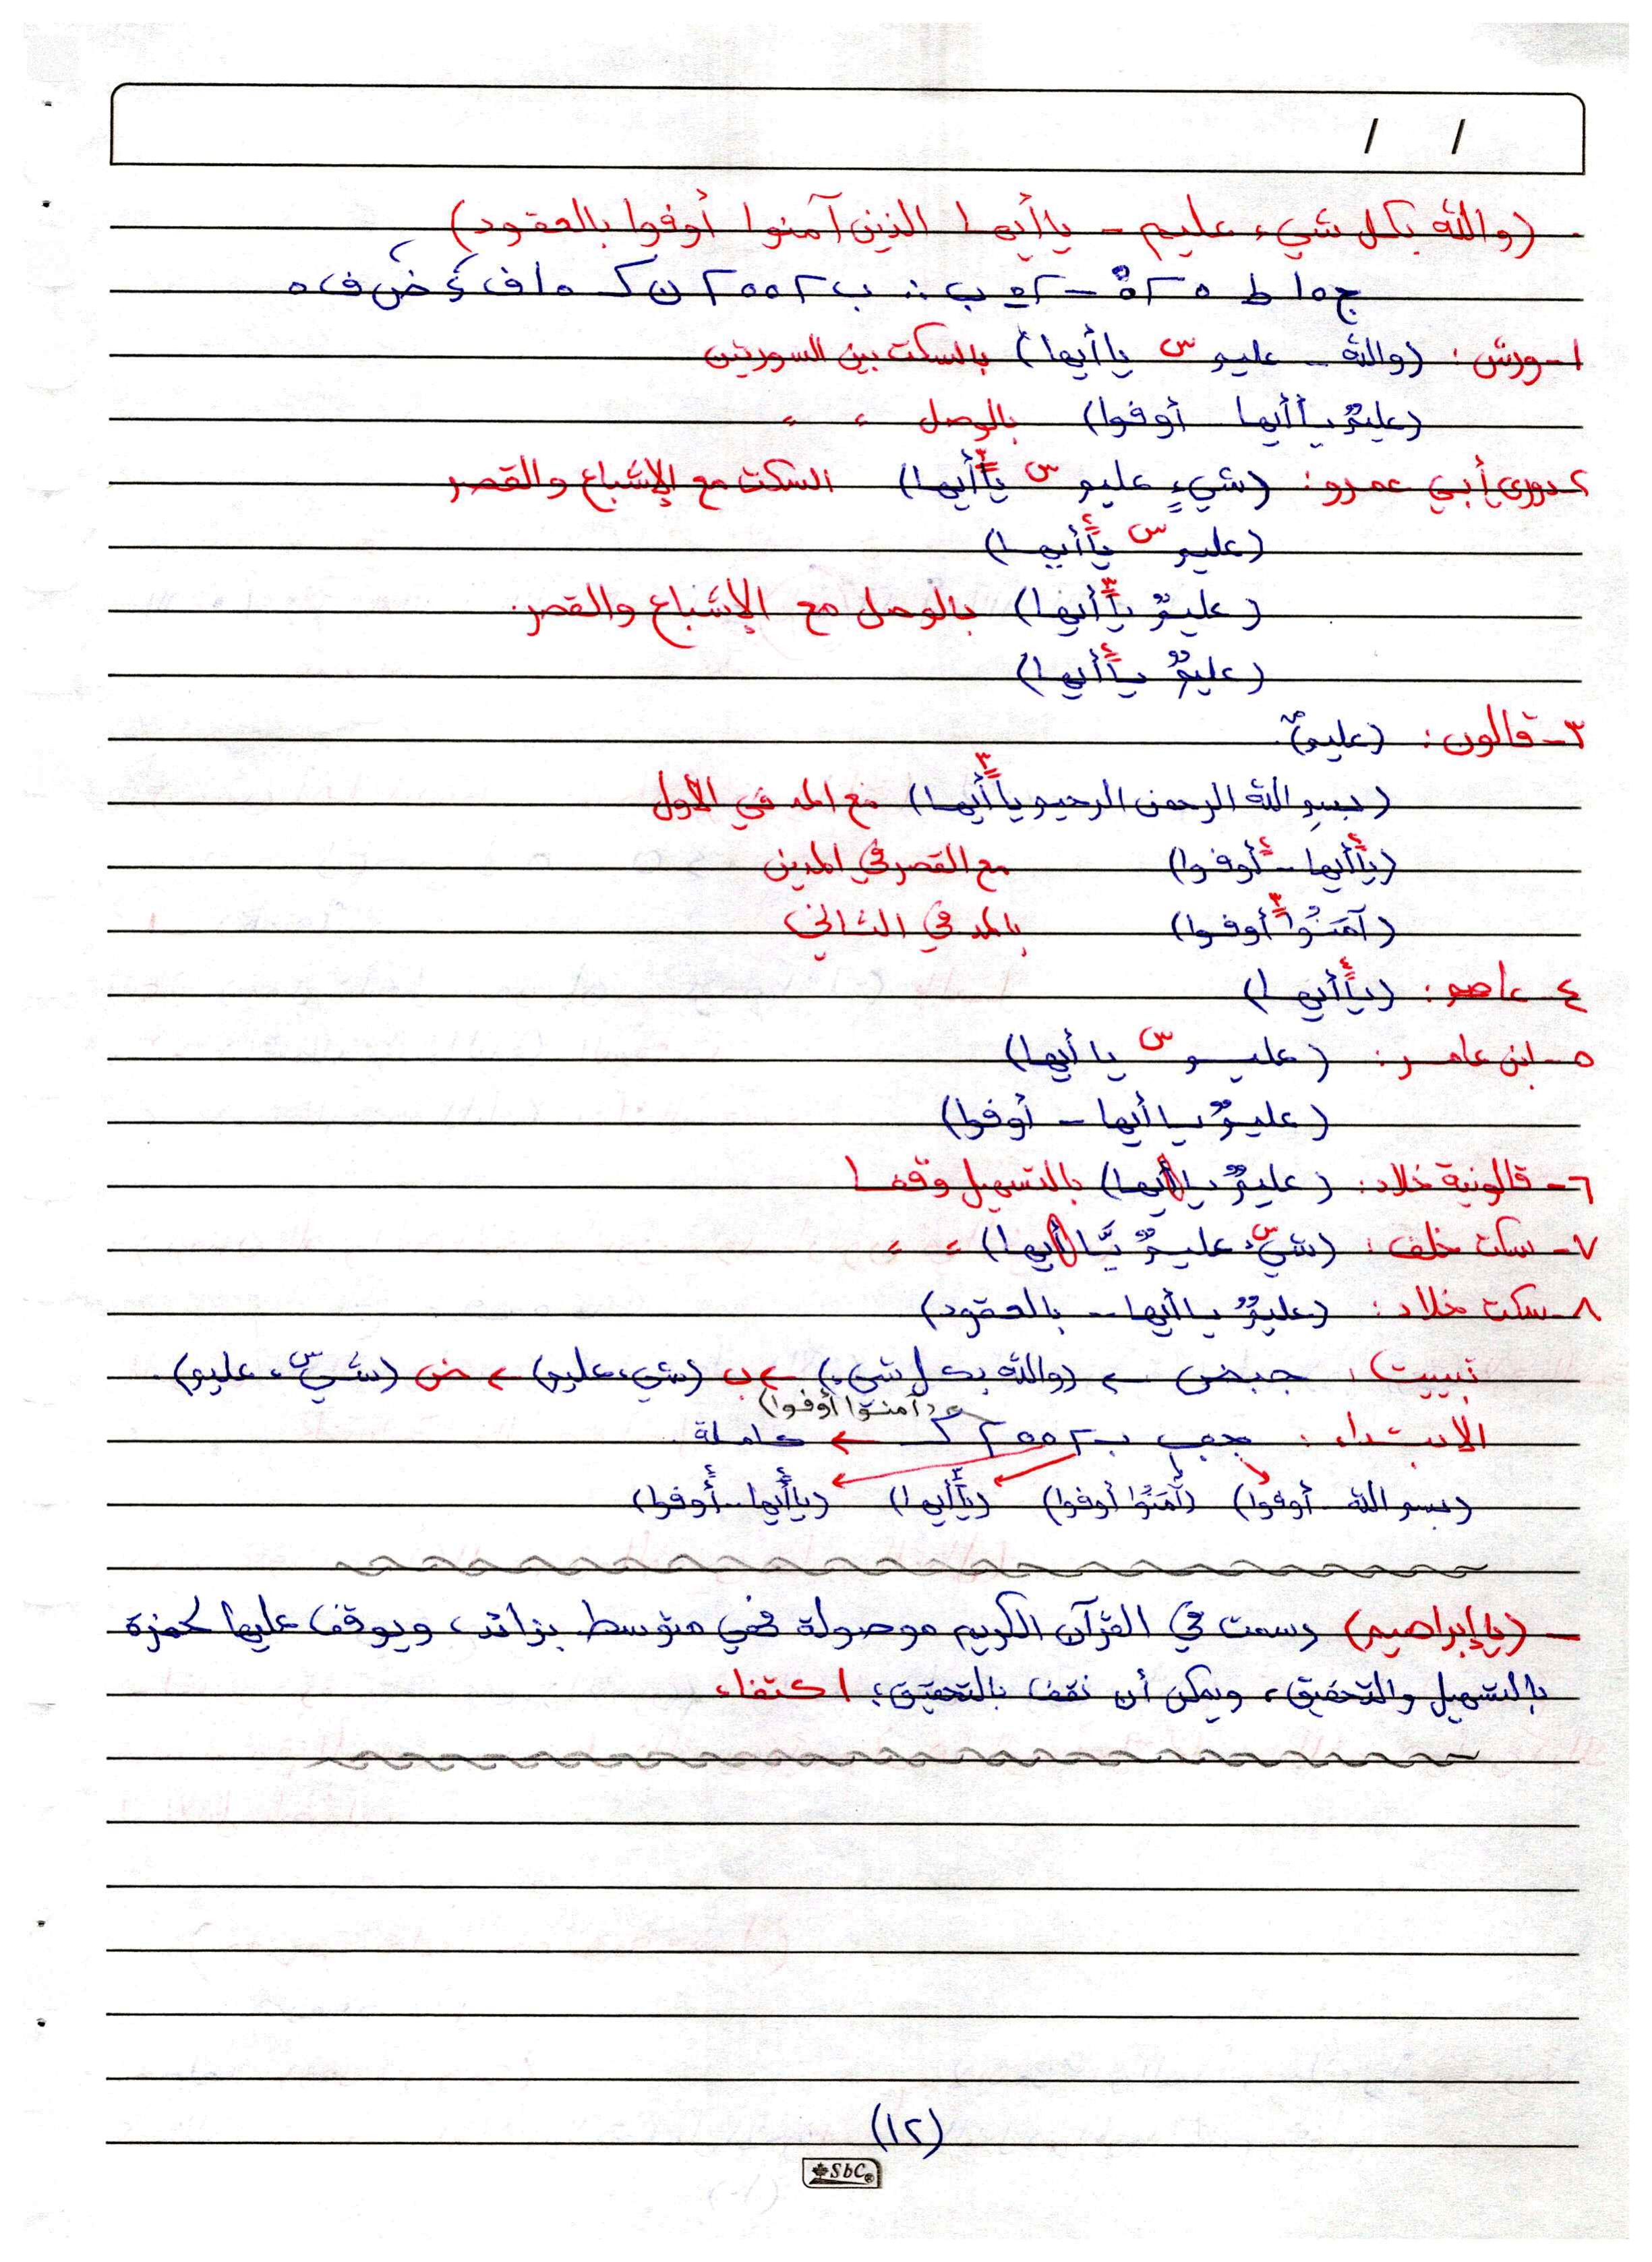 / /
(والله بكل شيء عليم - ياأيها الذين آمنوا أوفوا بالعقود)
١- ورش: (والله - عليم س ياأيها) بالسكت بين السورتين
(عليم ياأيها أوفوا) بالوصل " "
٢- دوري أبي عمرو: (شيءٍ عليم س ياأيها) السكت مع الإشباع والقصر
(عليم س ياأيها)
(عليمٌ ياأيها) بالوصل مع الإشباع والقصر.
(عليمٌ ياأيها)
٣- قالون: (عليم).
(بسم الله الرحمن الرحيم ياأيها) مع المد في الأول
(ياأيها - أوفوا) مع القصر في المدين
(آمَنُوا أوفوا) بالمد في الثاني
٤- عاصم: (ياأيها)
٥- ابن عامر: (عليم س ياأيها)
(عليمٌ ياأيها - أوفوا)
٦- قالونية خلاد: (عليمٌ ياأيها) بالتسهيل وقفا
٧- سكت خلف: (شيء عليمٌ يّاأيها) " "
٨- سكت خلاد: (عليمٌ ياأيها - بالعقود)
تبييت: جبض ← (والله بكل شيء) ← ب (شيء عليم) ← ض (شيء عليم).
(آمنوا أوفوا)
الابتداء: ← كاملة.
(بسم الله - أوفوا) (آمَنُوا أوفوا) (ياأيها) (ياأيها - أوفوا)
- (ياإبراهيم) رسمت في القرآن الكريم موصولة فهي متوسط بزائد، ويوقف عليها لحمزة
بالتسهيل والتحقيق، ويمكن أن نقف بالتحقيق؛ اكتفاء
(١٢)
SbC®